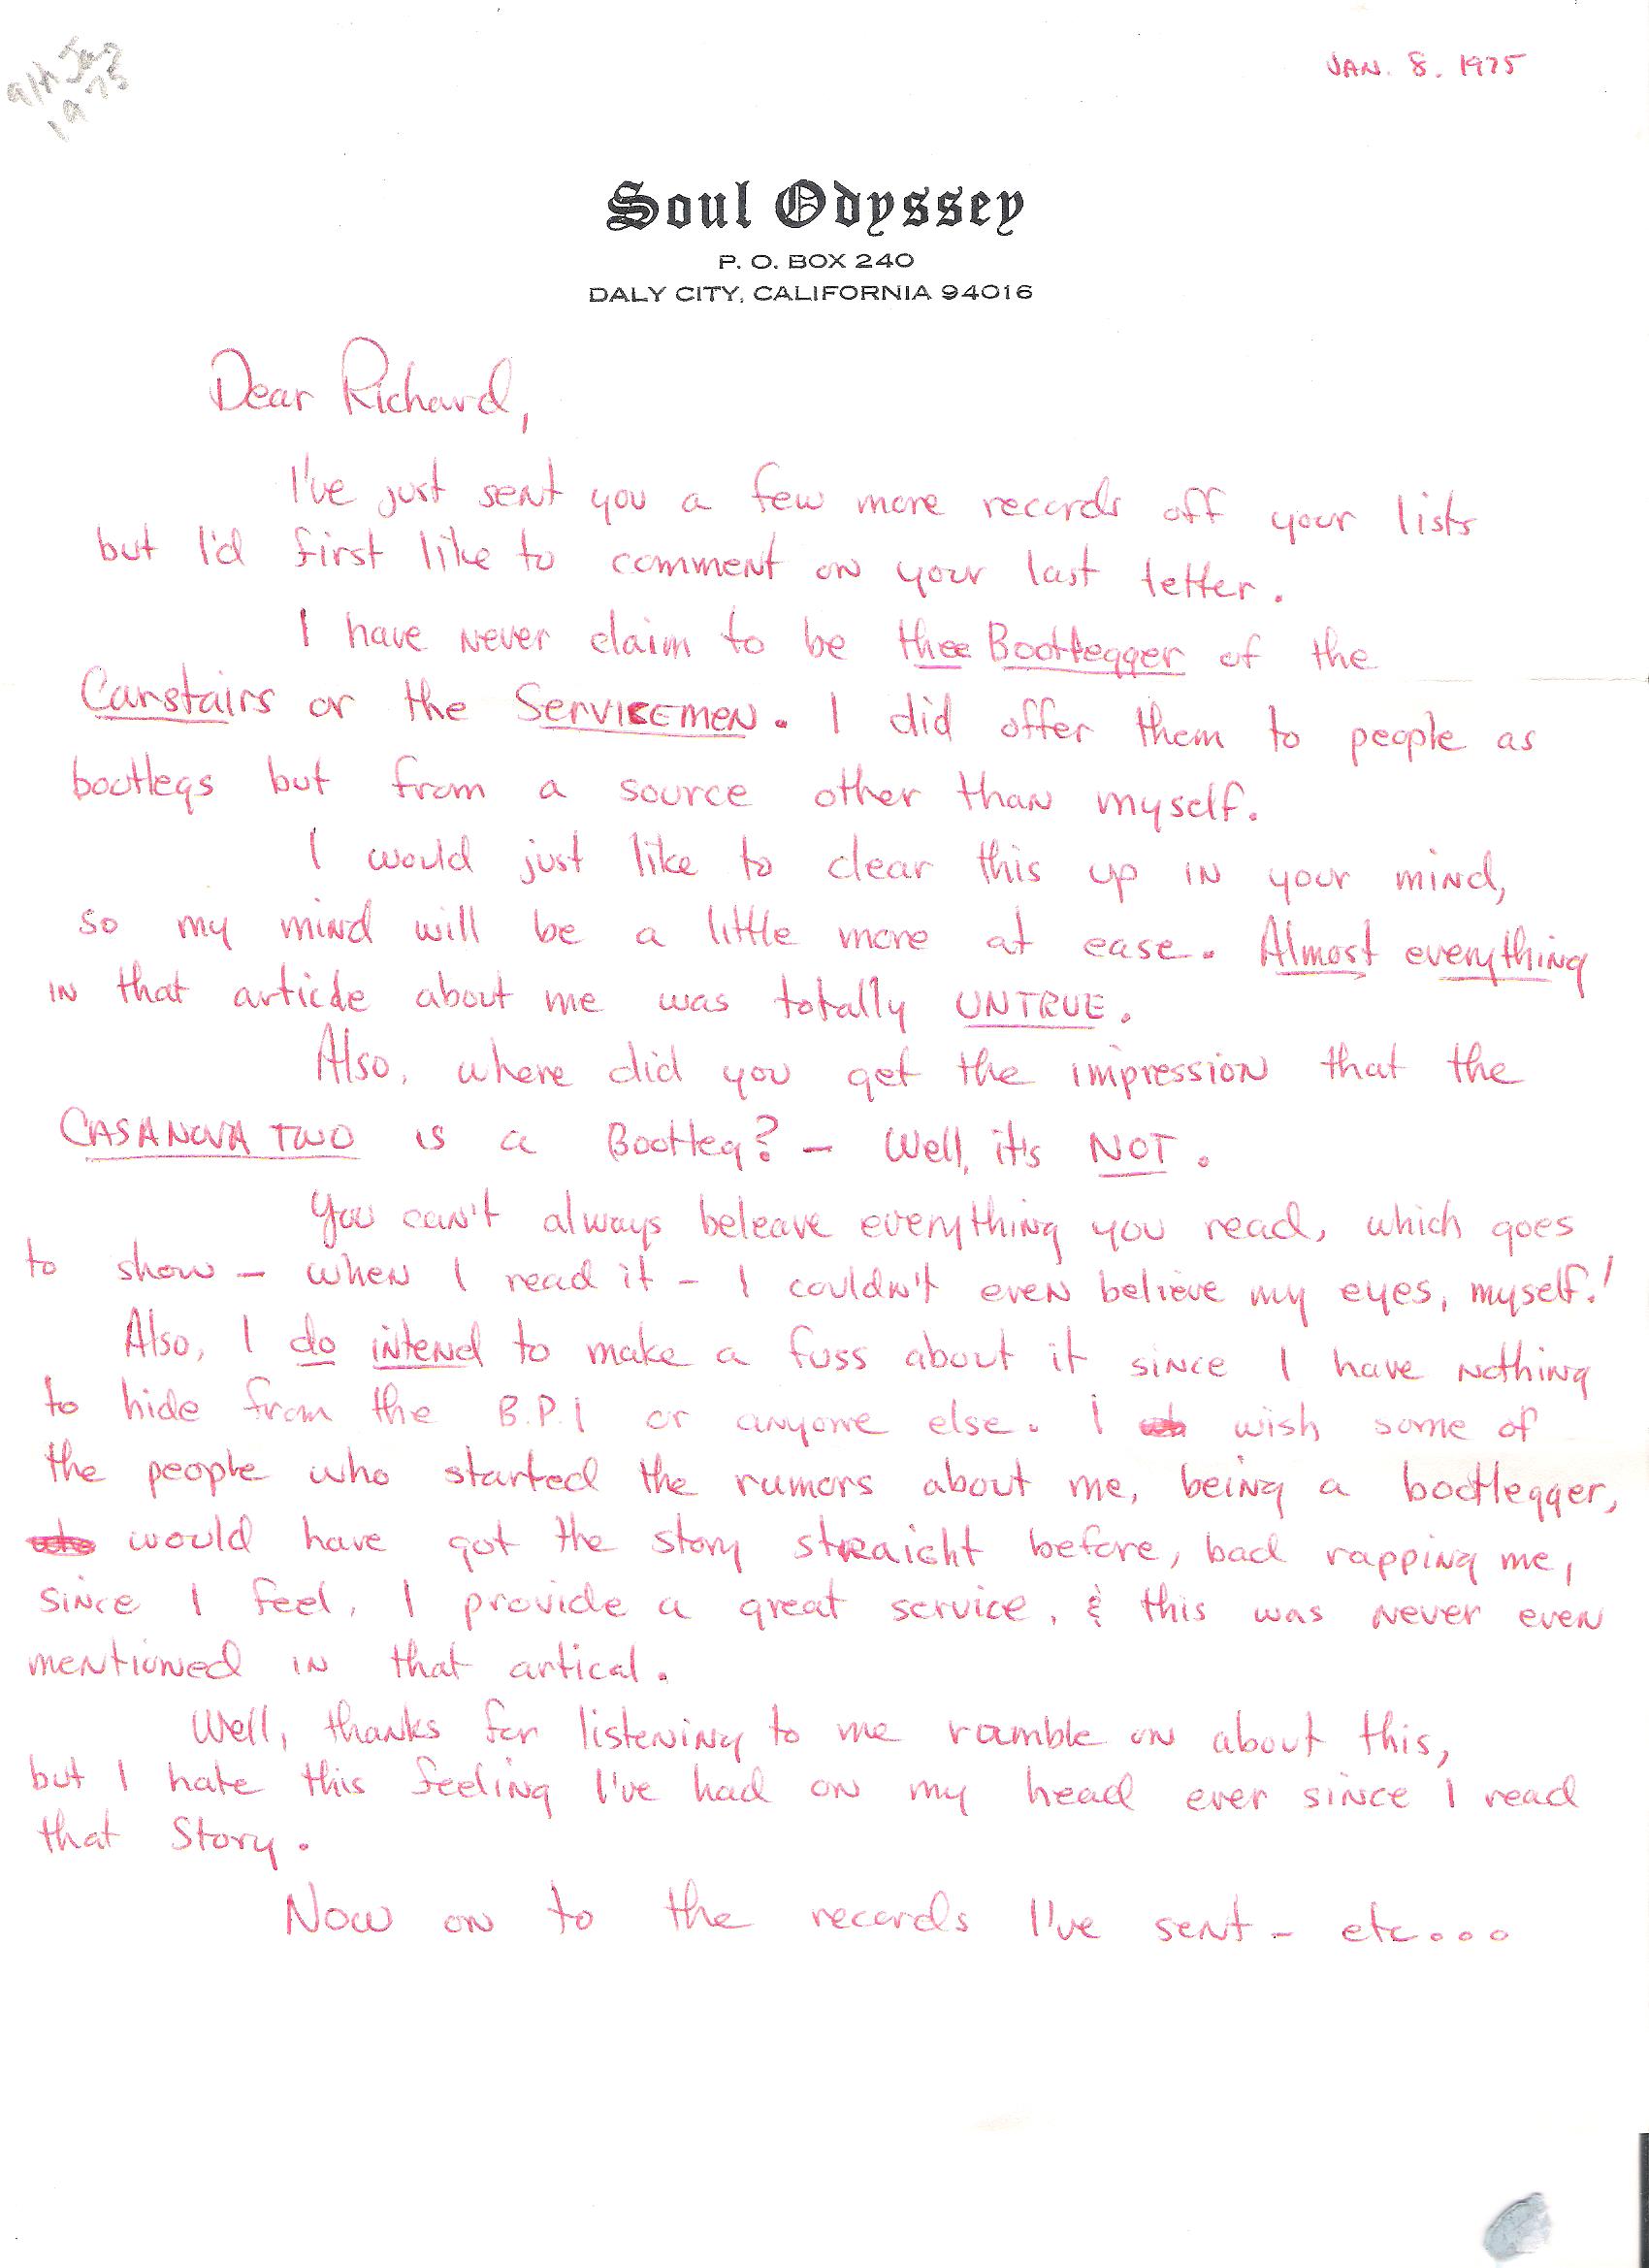 9th Jan
1975
JAN. 8. 1975
Soul Odyssey
P. O. BOX 240
DALY CITY, CALIFORNIA 94016
Dear Richard,
I've just sent you a few more records off your lists
but I'd first like to comment on your last letter.
I have never claim to be thee Bootlegger of the
Carstairs or the Servicemen. I did offer them to people as
bootlegs but from a source other than myself.
I would just like to clear this up in your mind,
so my mind will be a little more at ease. Almost everything
in that article about me was totally UNTRUE.
Also, where did you get the impression that the
CASANOVA TWO is a Bootleg? – Well, it's NOT.
You can't always beleave everything you read, which goes
to show – when I read it – I couldn't even believe my eyes, myself!
Also, I do intend to make a fuss about it since I have nothing
to hide from the B.P.I or anyone else. I wish some of
the people who started the rumors about me, being a bootlegger,
would have got the story straight before, bad rapping me,
since I feel, I provide a great service, & this was never even
mentioned in that artical.
Well, thanks for listening to me ramble on about this,
but I hate this feeling I've had on my head ever since I read
that Story.
Now on to the records I've sent – etc...